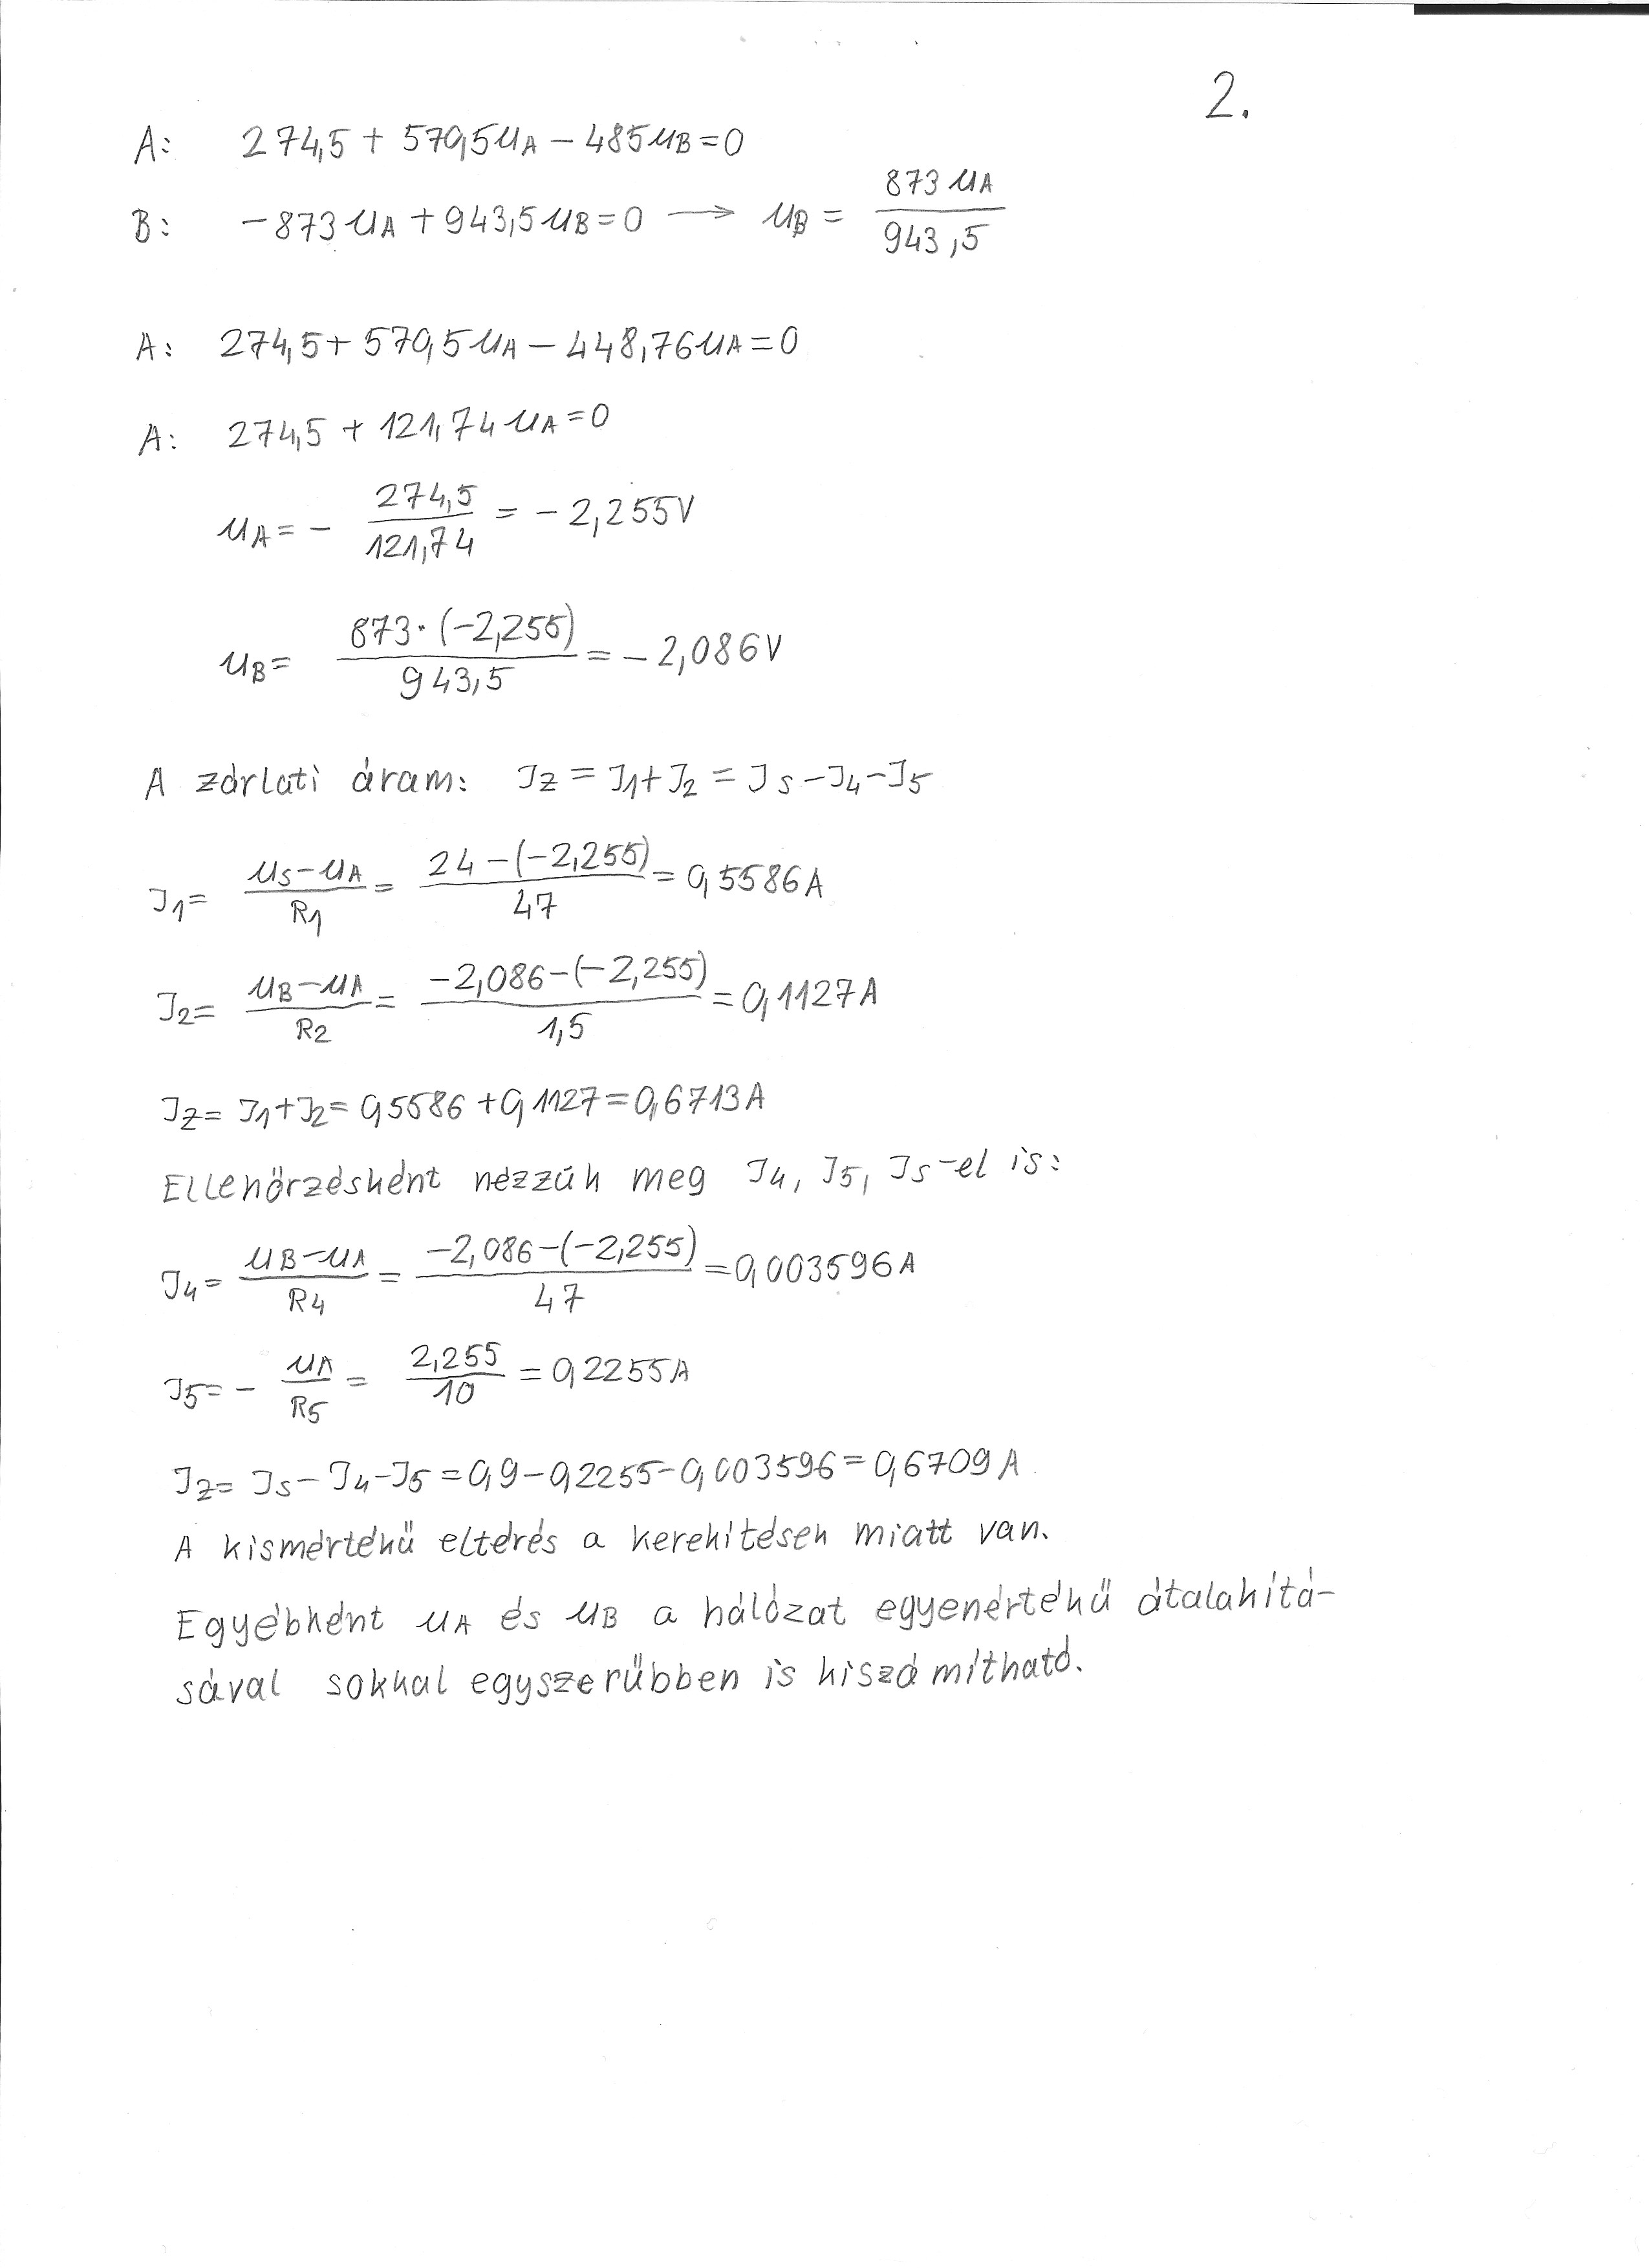 2.
A: 274,5 + 570,5UA - 485UB = 0
B: -873UA + 943,5UB = 0 → UB = 873UA / 943,5
A: 274,5 + 570,5UA - 448,76UA = 0
A: 274,5 + 121,74UA = 0
UA = - 274,5 / 121,74 = -2,255V
UB = 873·(-2,255) / 943,5 = -2,086V
A zárlati áram: Iz = I1+I2 = Is-I4-I5
I1 = Us-UA / R1 = 24-(-2,255) / 47 = 0,5586A
I2 = UB-UA / R2 = -2,086-(-2,255) / 1,5 = 0,1127A
Iz = I1+I2 = 0,5586+0,1127 = 0,6713A
Ellenőrzésként nézzük meg I4, I5, Is-el is:
I4 = UB-UA / R4 = -2,086-(-2,255) / 47 = 0,003596A
I5 = - UA / R5 = 2,255 / 10 = 0,2255A
Iz = Is-I4-I5 = 0,9-0,2255-0,003596 = 0,6709A
A kismértékű eltérés a kerekítések miatt van.
Egyébként UA és UB a hálózat egyenértékű átalakítá-
sával sokkal egyszerűbben is kiszámítható.